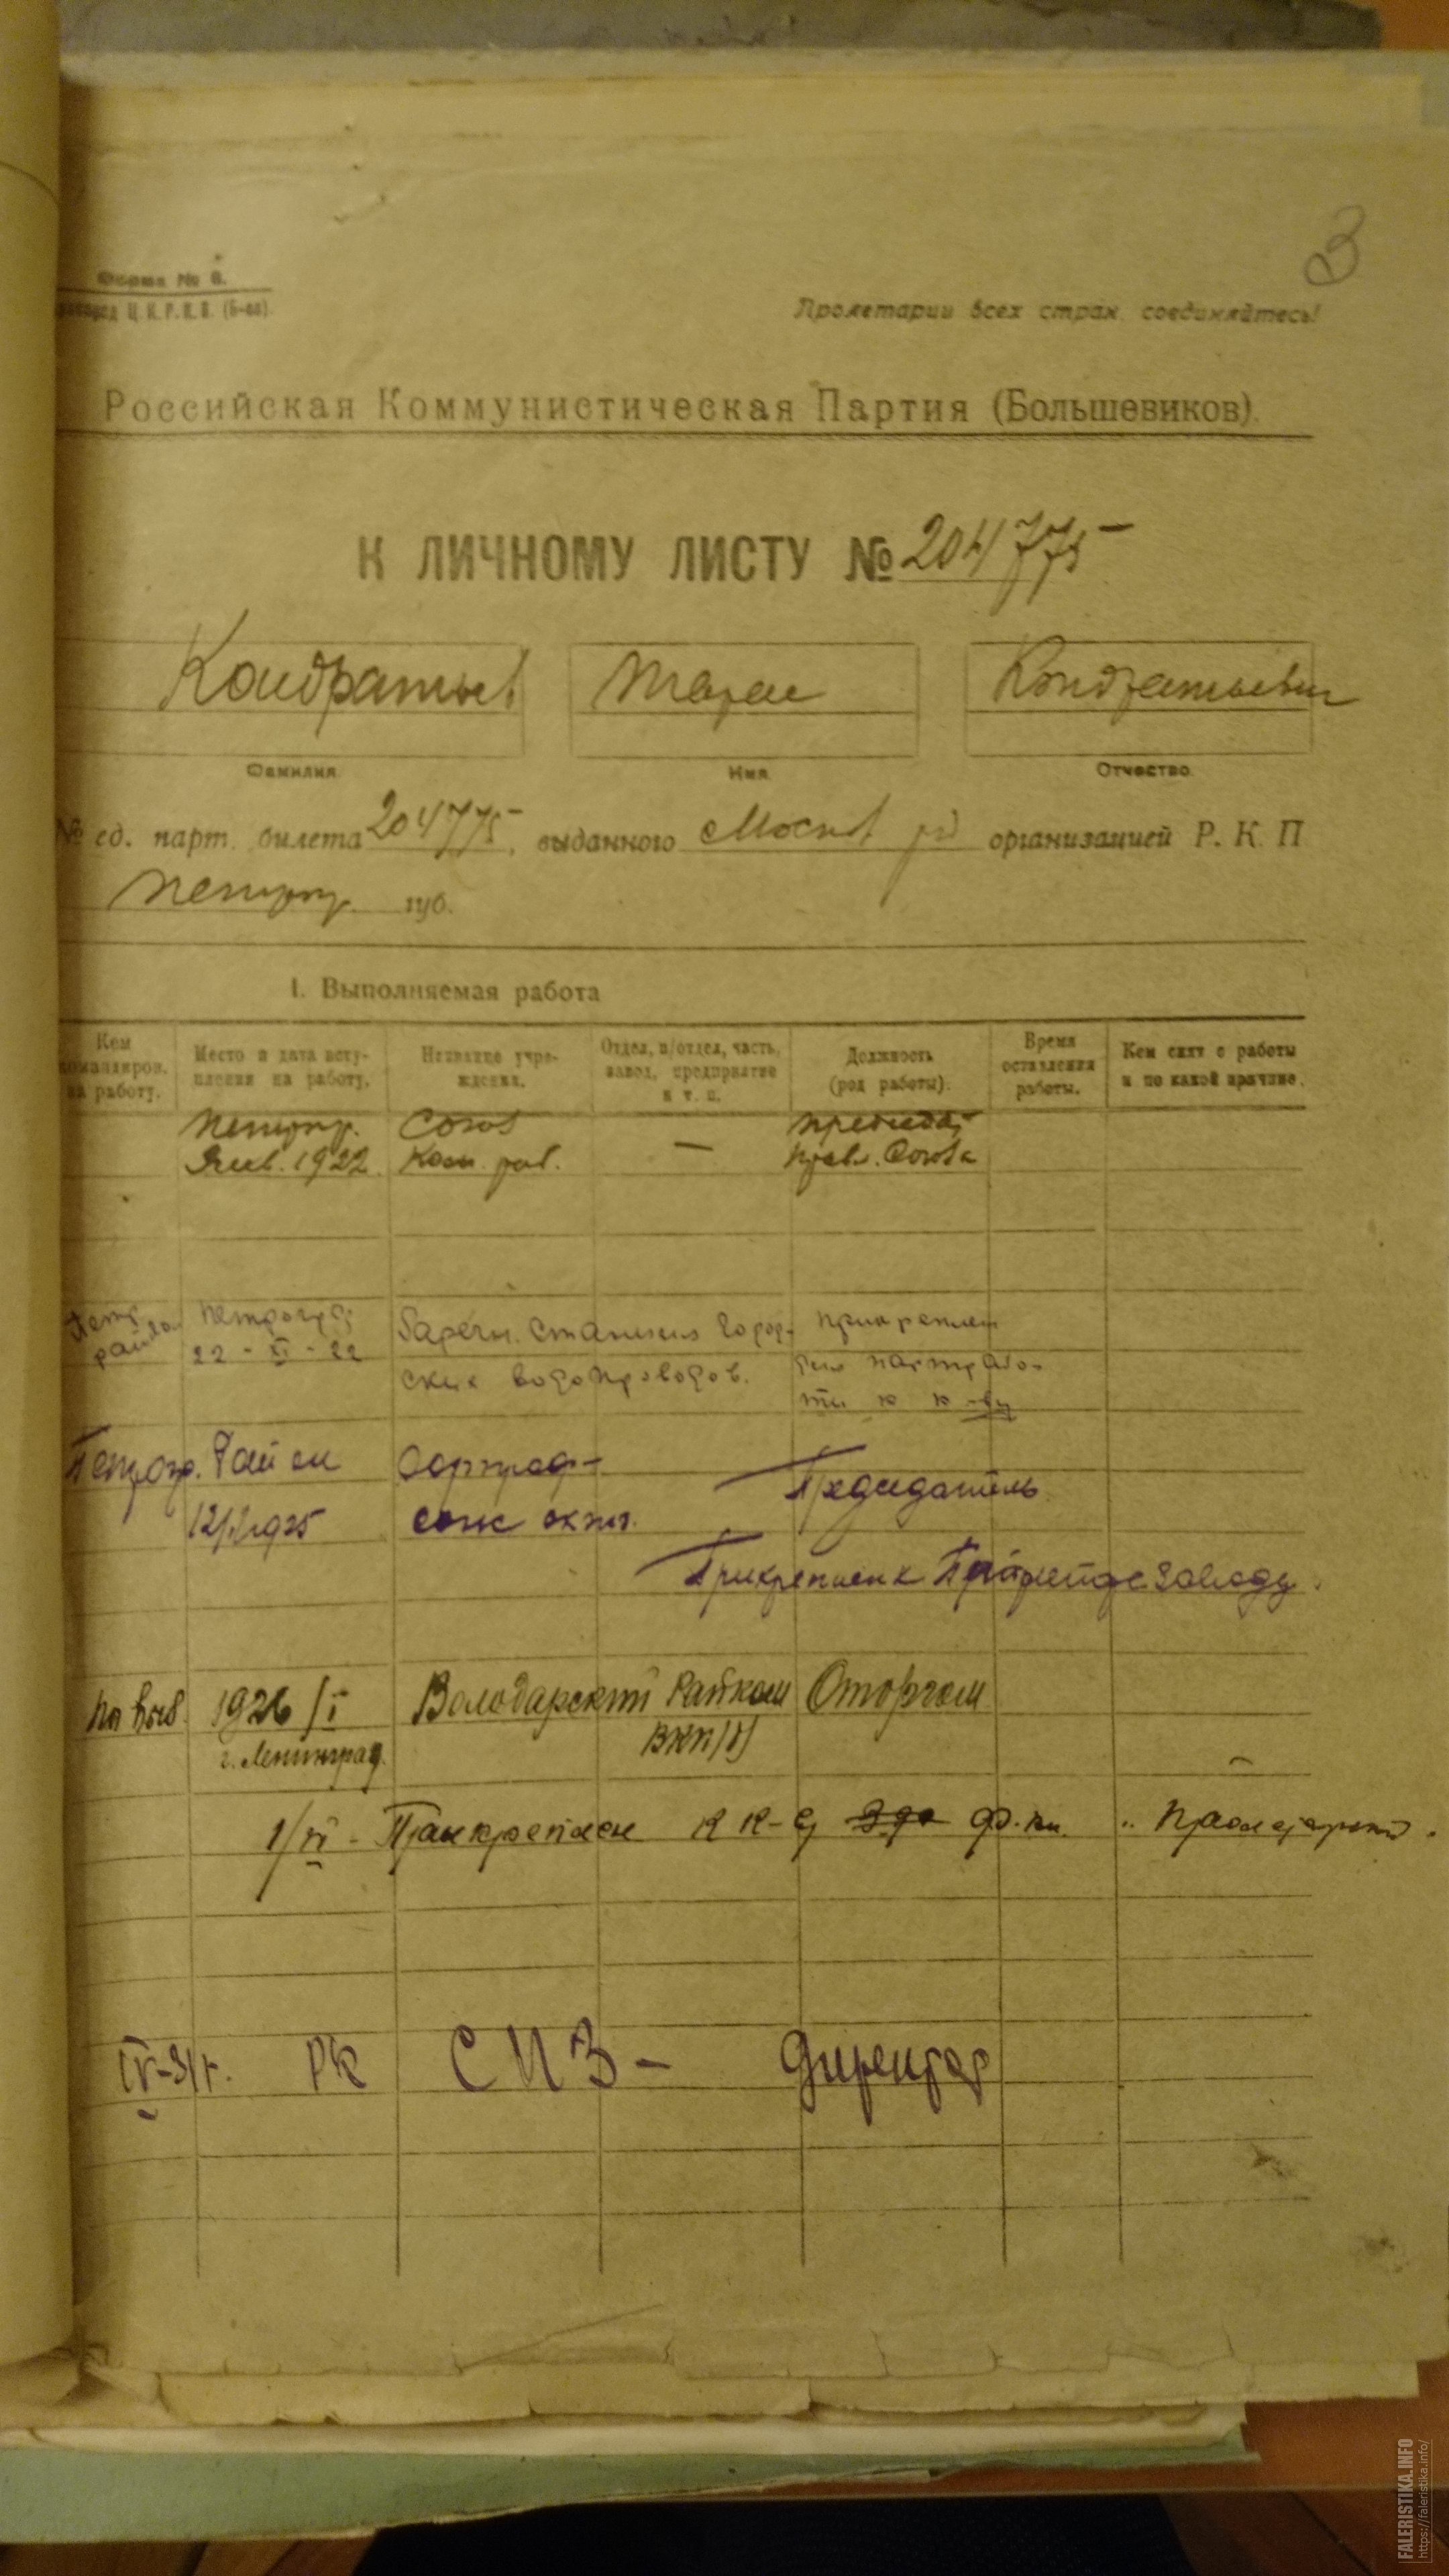 3
Форма № 6.
Ц. К. Р. К. П. (б-ов).
Пролетарии всех стран, соединяйтесь!
Российская Коммунистическая Партия (Большевиков).
К ЛИЧНОМУ ЛИСТУ № 204775
Кондратьев Тарас Кондратьевич
Фамилия. Имя. Отчество.
№ ед. парт. билета 204775, выданного Москов организацией Р. К. П
Петрогр. губ.
I. Выполняемая работа
Кем командиров. на работу.
Место и дата вступления на работу.
Название учреждения.
Отдел, п/отдел, часть, завод, предприятие и т. п.
Должность (род работы).
Время оставления работы.
Кем снят с работы и по какой причине.
Петрогр. Союз председ.
Янв. 1922 Ком. раб. — правл. Союза
Петр Петрогр прикреплен
22 - XI - 22 станция Город-
ских водопроводов.
к к-ву
Петрогр. Райком Председатель
1925
Прикреплен к заводу.
1926/I Володарский Райком Отторгом
г. Ленинград. ВКП(б)
1/VI - Прикреплен к к-ву ф-ки „Пролетарский"
IV-31г. РК СМЗ - директор
FALERISTIKA.INFO
https://faleristika.info/